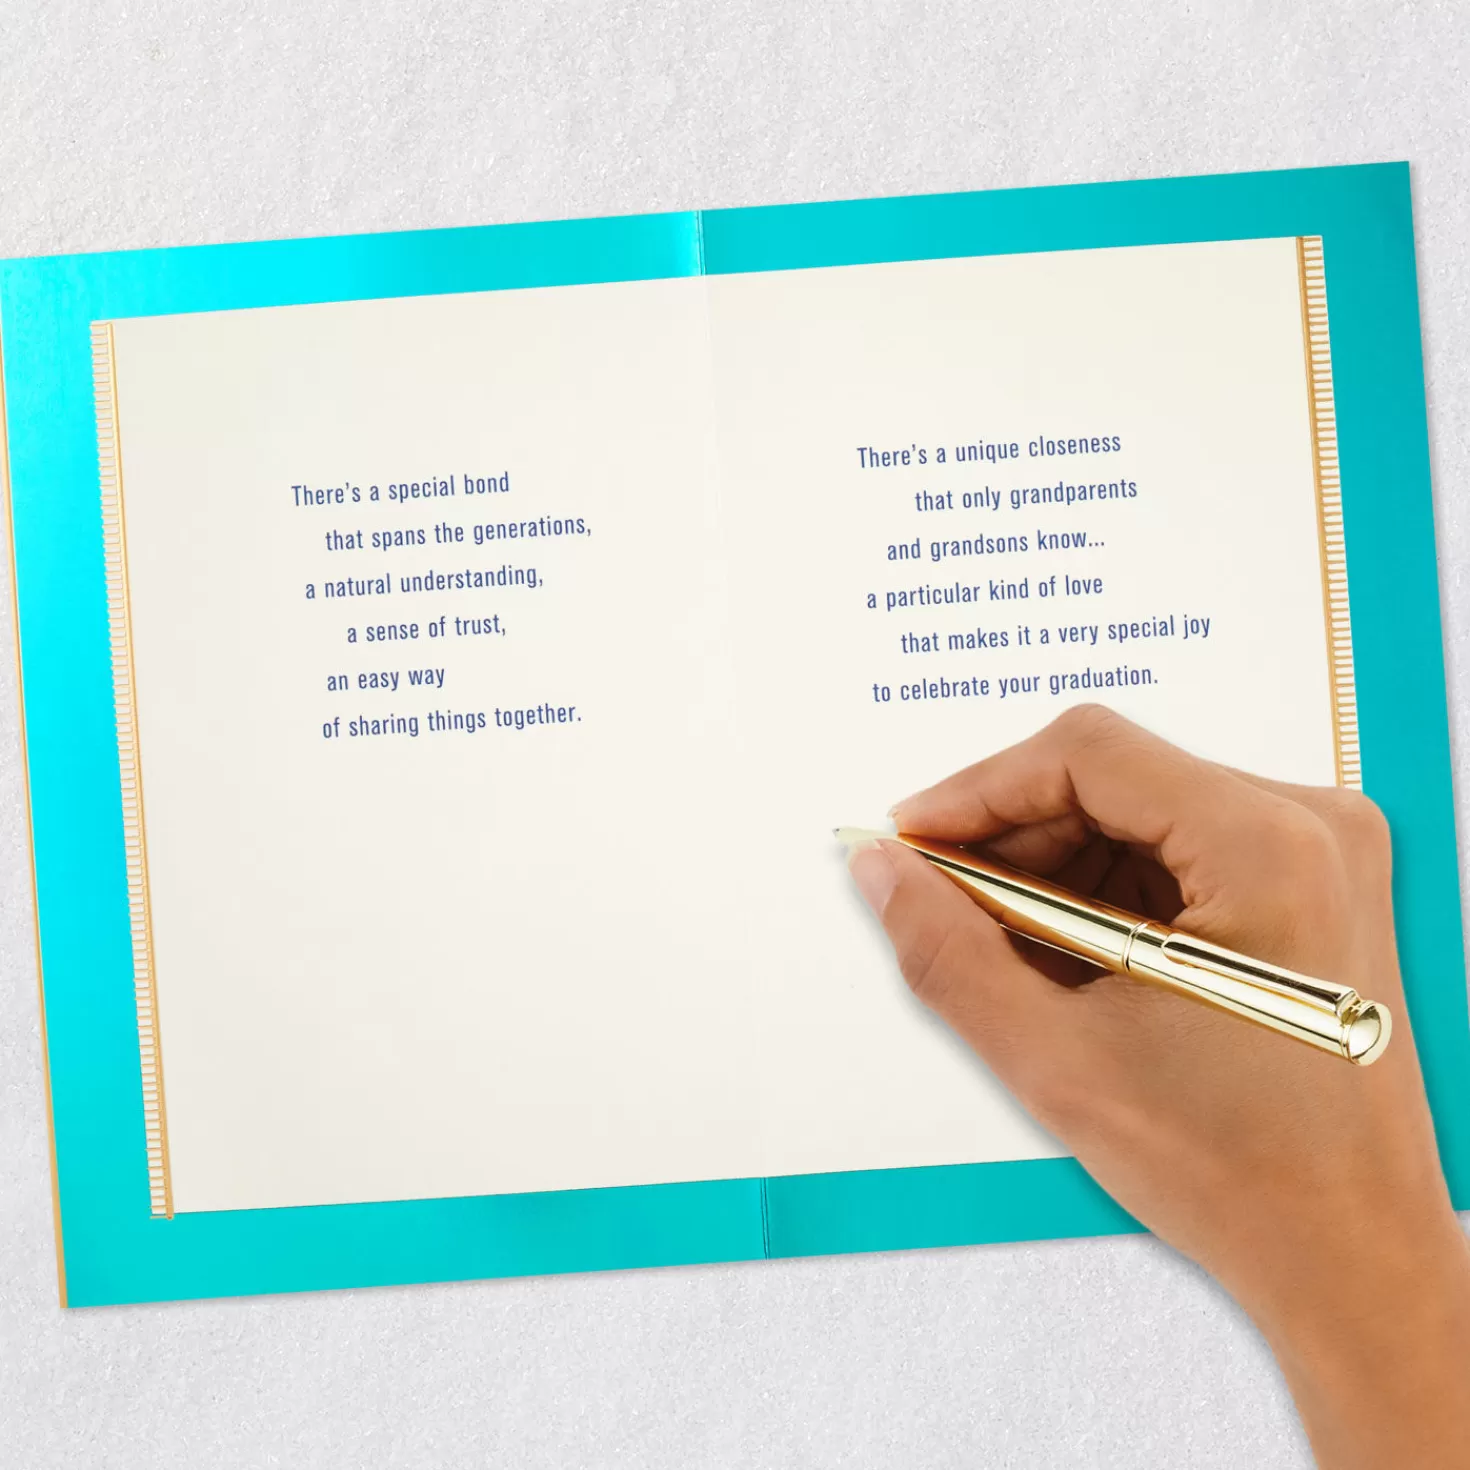 There's a special bond
that spans the generations,
a natural understanding,
a sense of trust,
an easy way
of sharing things together.
There's a unique closeness
that only grandparents
and grandsons know...
a particular kind of love
that makes it a very special joy
to celebrate your graduation.